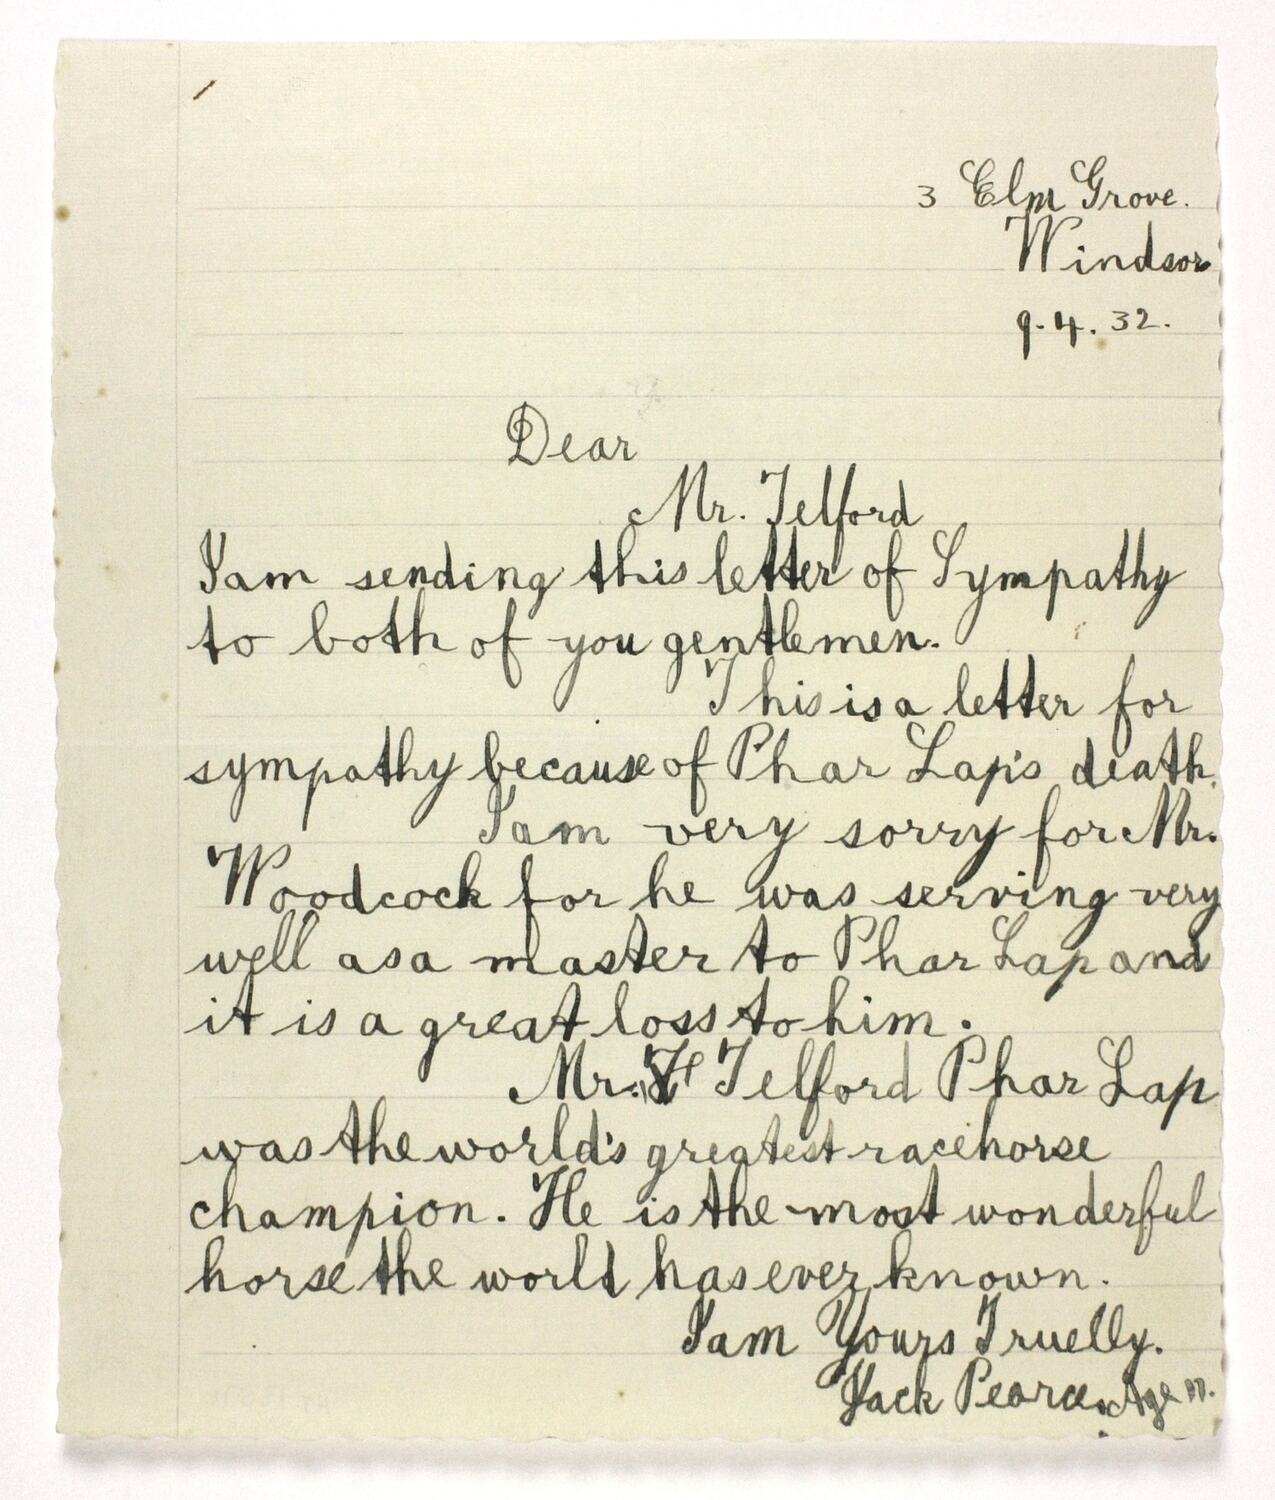 3 Elm Grove.
Windsor
9.4.32.
Dear
Mr. Telford
I am sending this letter of Sympathy
to both of you gentlemen.
This is a letter for
sympathy because of Phar Lap's death.
I am very sorry for Mr.
Woodcock for he was serving very
well as a master to Phar Lap and
it is a great loss to him.
Mr. Telford Phar Lap
was the world's greatest racehorse
champion. He is the most wonderful
horse the world has ever known.
I am Yours Truelly.
Jack Pearce. Age